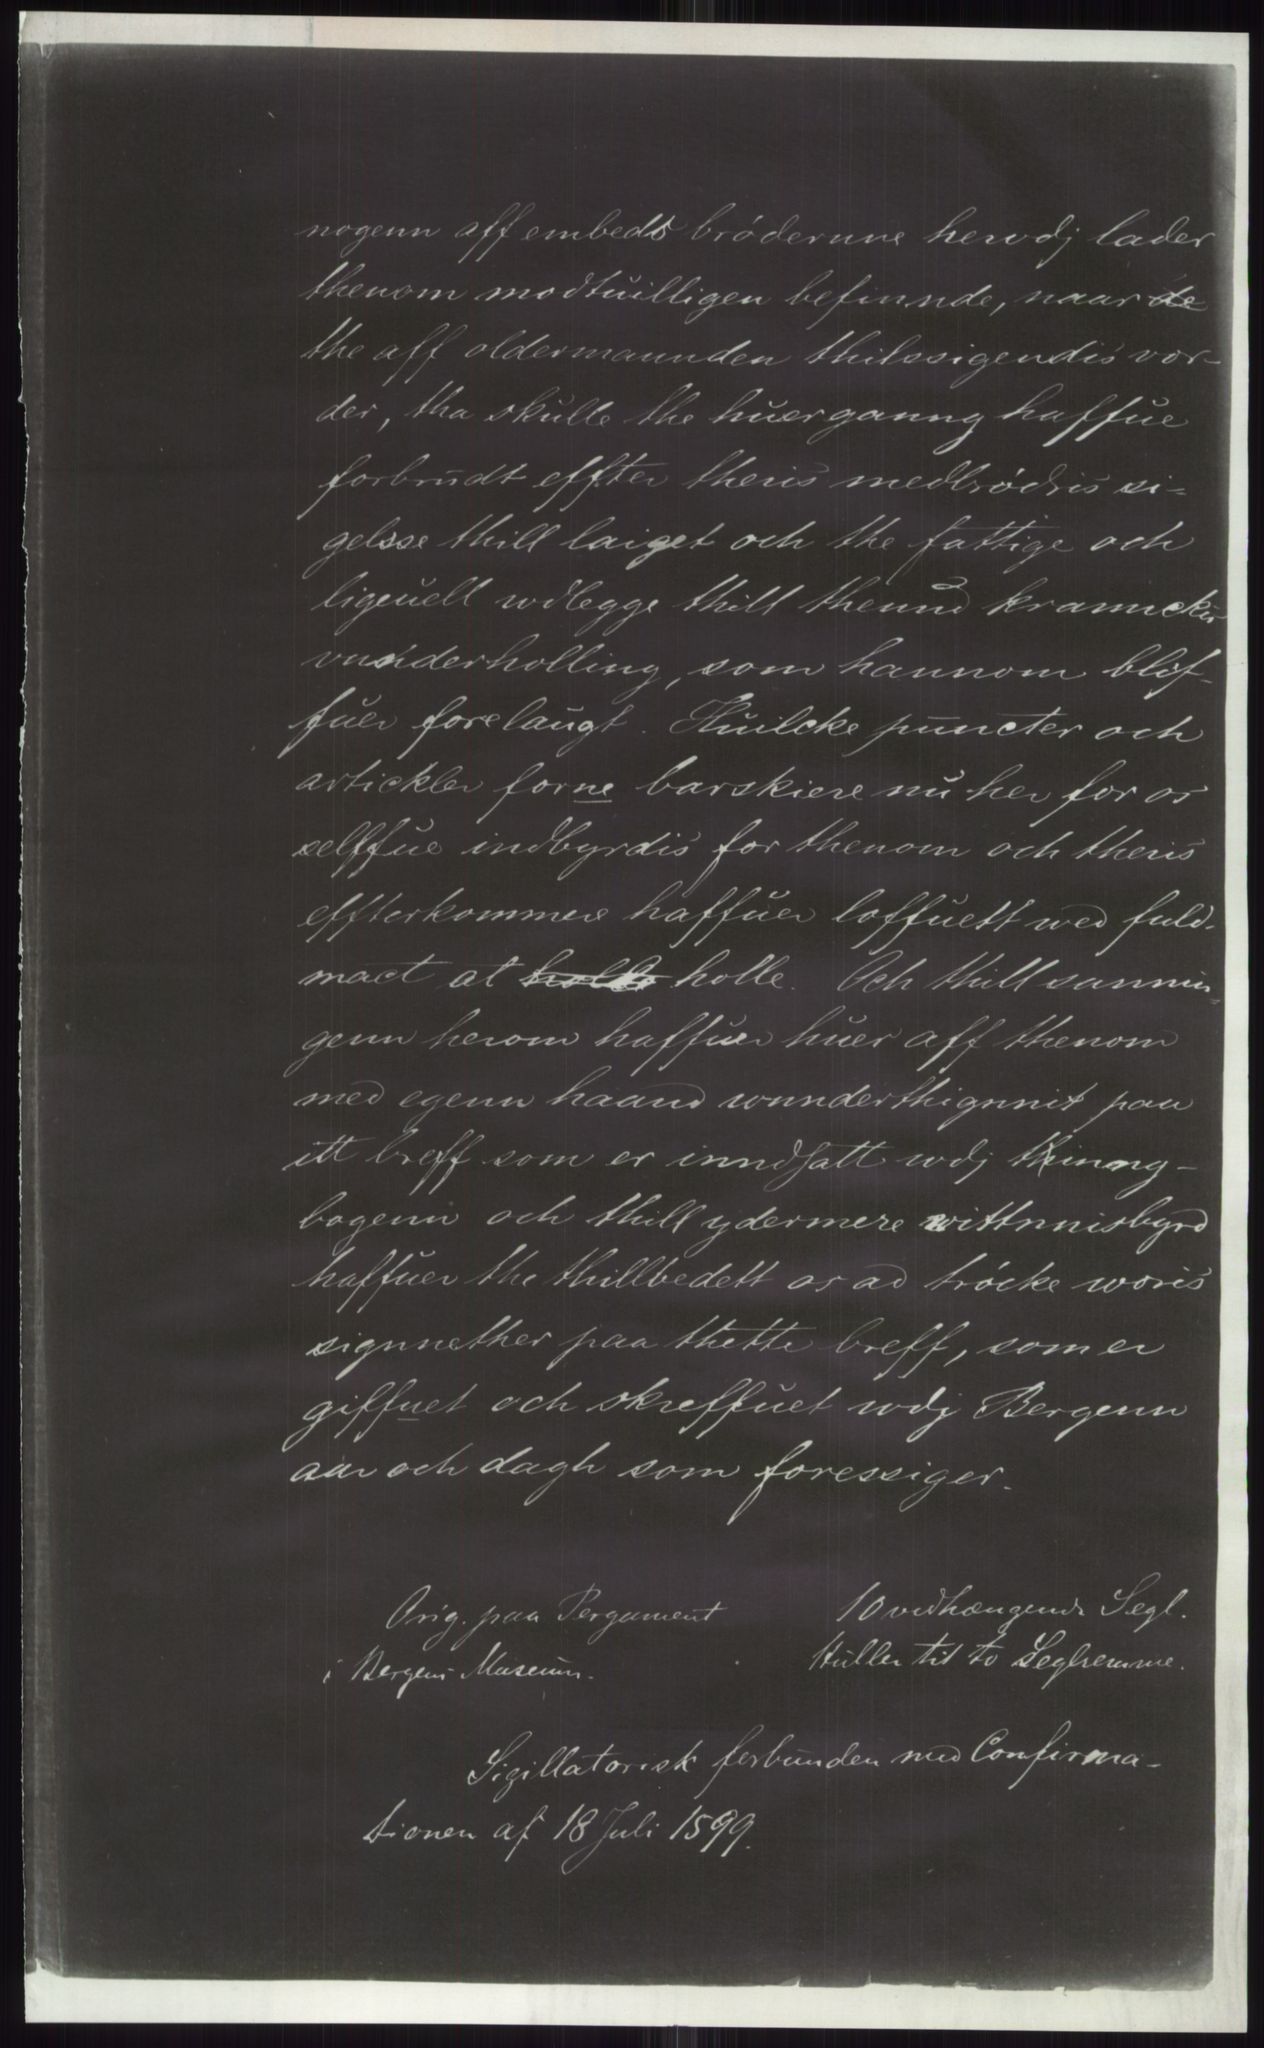 nogenn aff embedts brøderune herwdj lader
thenom modtuilligen befinnde, naar de
the aff oldermannden thilssigendis vor-
der, tha skulle the huer ganng haffue
forbrudt effter theris medbrødris si-
gelsse thill laiget och the fattige och
ligeuell wdlegge thill thennd krannckis
vunderholling, som hannom blif-
fuer forelaugt. Huilcke puncter och
artickler forne barskiere nu her for os
selffue indbyrdis for thenom och theris
effterkommere haffuer loffuett wed fuld-
mact at holle holle. Och thill sannin-
genn herom haffuer huer aff thenom
med egenn haand wnnderthignnit paa
itt breff som er inndsatt wdj thinng-
bogenn och thill ydermere wittnnisbyrd
haffuer the thillbedett os ad trøcke woris
signnether paa thette breff, som er
giffuet och skreffuet wdj Bergenn
aar och dagh som foressiger.
Orig. paa Pergament
i Bergens Museum.
10 vedhængende Segl.
Huller til to Seglremme.
Sigillatorisk forbunden med Confirma-
tionen af 18 Juli 1599.